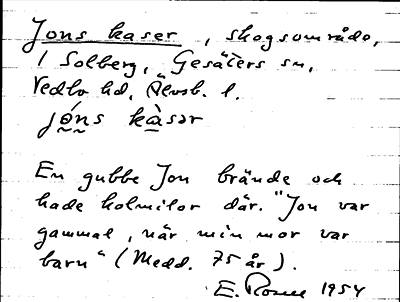 Jons kaser, skogsområde,
i Solberg, Gesäters sn,
Vedbo hd, Älvsb. l.
jó̰n̰s kàsər
En gubbe Jon brände och
hade kolmilor där. "Jon var
gammal, när min mor var
barn" (Medd. 75 år).
E. 1954